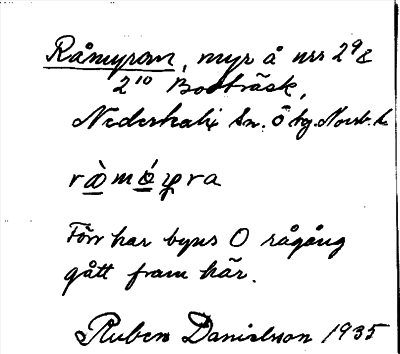 Råmyran, myr å nrs 2⁹ &
2¹⁰ Bodträsk,
Nederkalix sn. Ö tg. Norrb. l.
Förr har byns O rågång
gått fram här.
Ruben Danielsson 1935